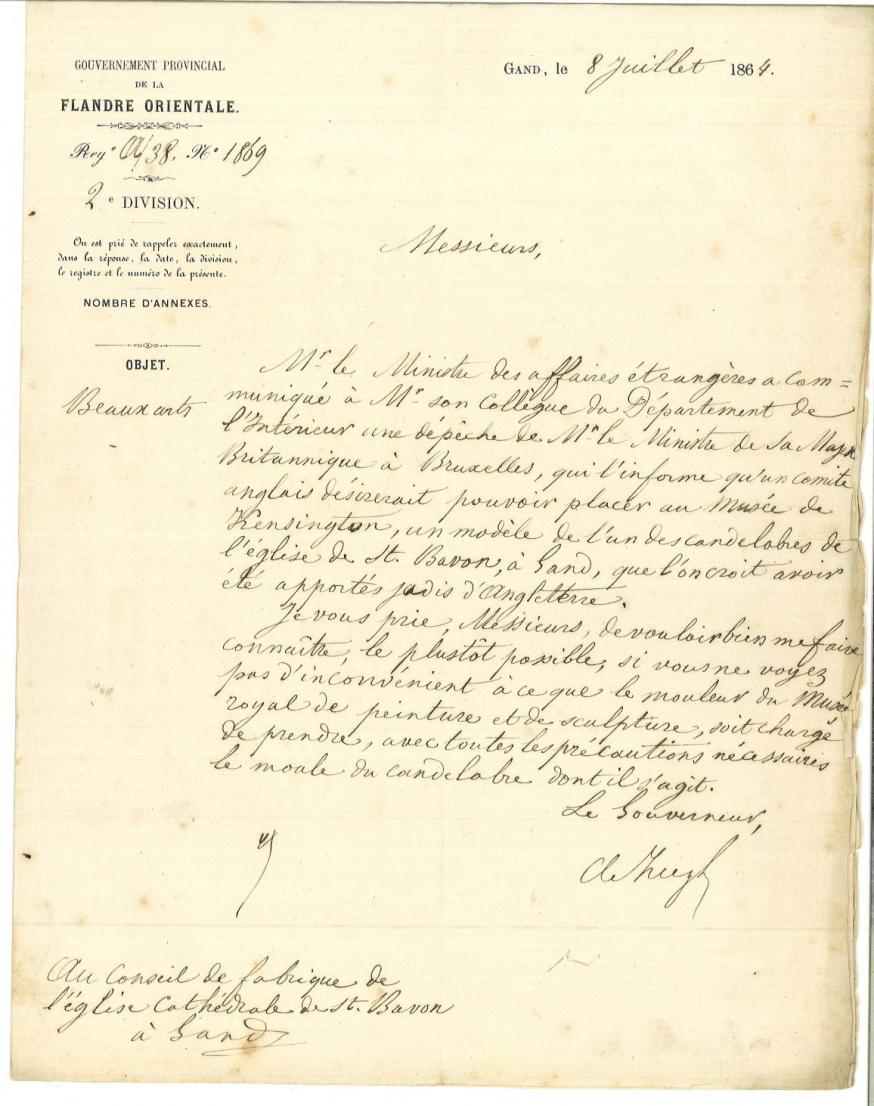 GOUVERNEMENT PROVINCIAL
DE LA
FLANDRE ORIENTALE.
Reg° A/38. N° 1869
2e DIVISION.
On est prié de rappeler exactement,
dans la réponse, la date, la division,
le registre et le numéro de la présente.
NOMBRE D'ANNEXES.
OBJET.
Beaux arts
GAND, le 8 Juillet 1864.
Messieurs,
Mr le Ministre des affaires étrangères a com=
muniqué à Mr son Collègue du Département de
l'Intérieur une dépêche de Mr le Ministre de Sa
Britannique à Bruxelles, qui l'informe qu'un comité
anglais désirerait pouvoir placer au Musée de
Kensington, un modèle de l'un des candelabres de
l'église de St. Bavon, à Gand, que l'on croit avoir
été apportés jadis d'Angleterre.
Je vous prie, Messieurs, de vouloir bien me faire
connaître, le plustôt possible, si vous ne voyez
pas d'inconvénient à ce que le mouleur du Musée
royal de peinture et de sculpture, soit chargé
de prendre, avec toutes les précautions nécessaires
le moule du candelabre dont il s'agit.
Le Gouverneur,
Au Conseil de fabrique de
l'église Cathédrale de St. Bavon
à Gand